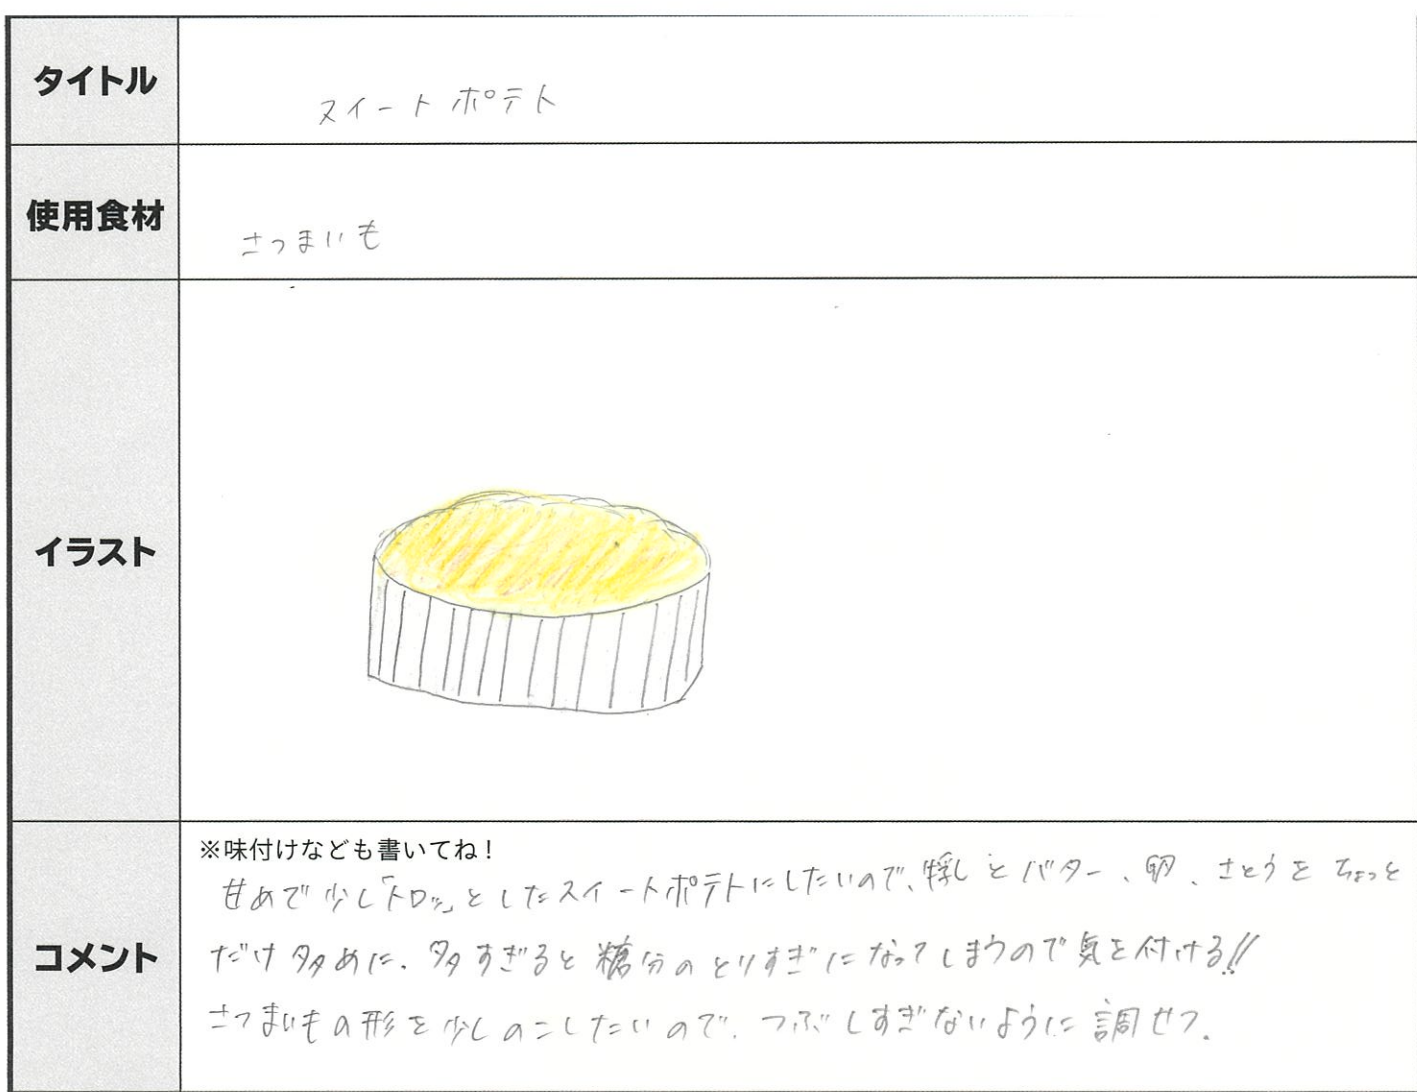 タイトル
スイートポテト
使用食材
さつまいも
イラスト
コメント
※味付けなども書いてね！
甘めで少し「トロッ」としたスイートポテトにしたいので、牛乳とバター、卵、さとうをちょっと
だけ多めに、多すぎると糖分のとりすぎになってしまうので気を付ける!!
さつまいもの形を少しのこしたいので、つぶしすぎないように調せつ。